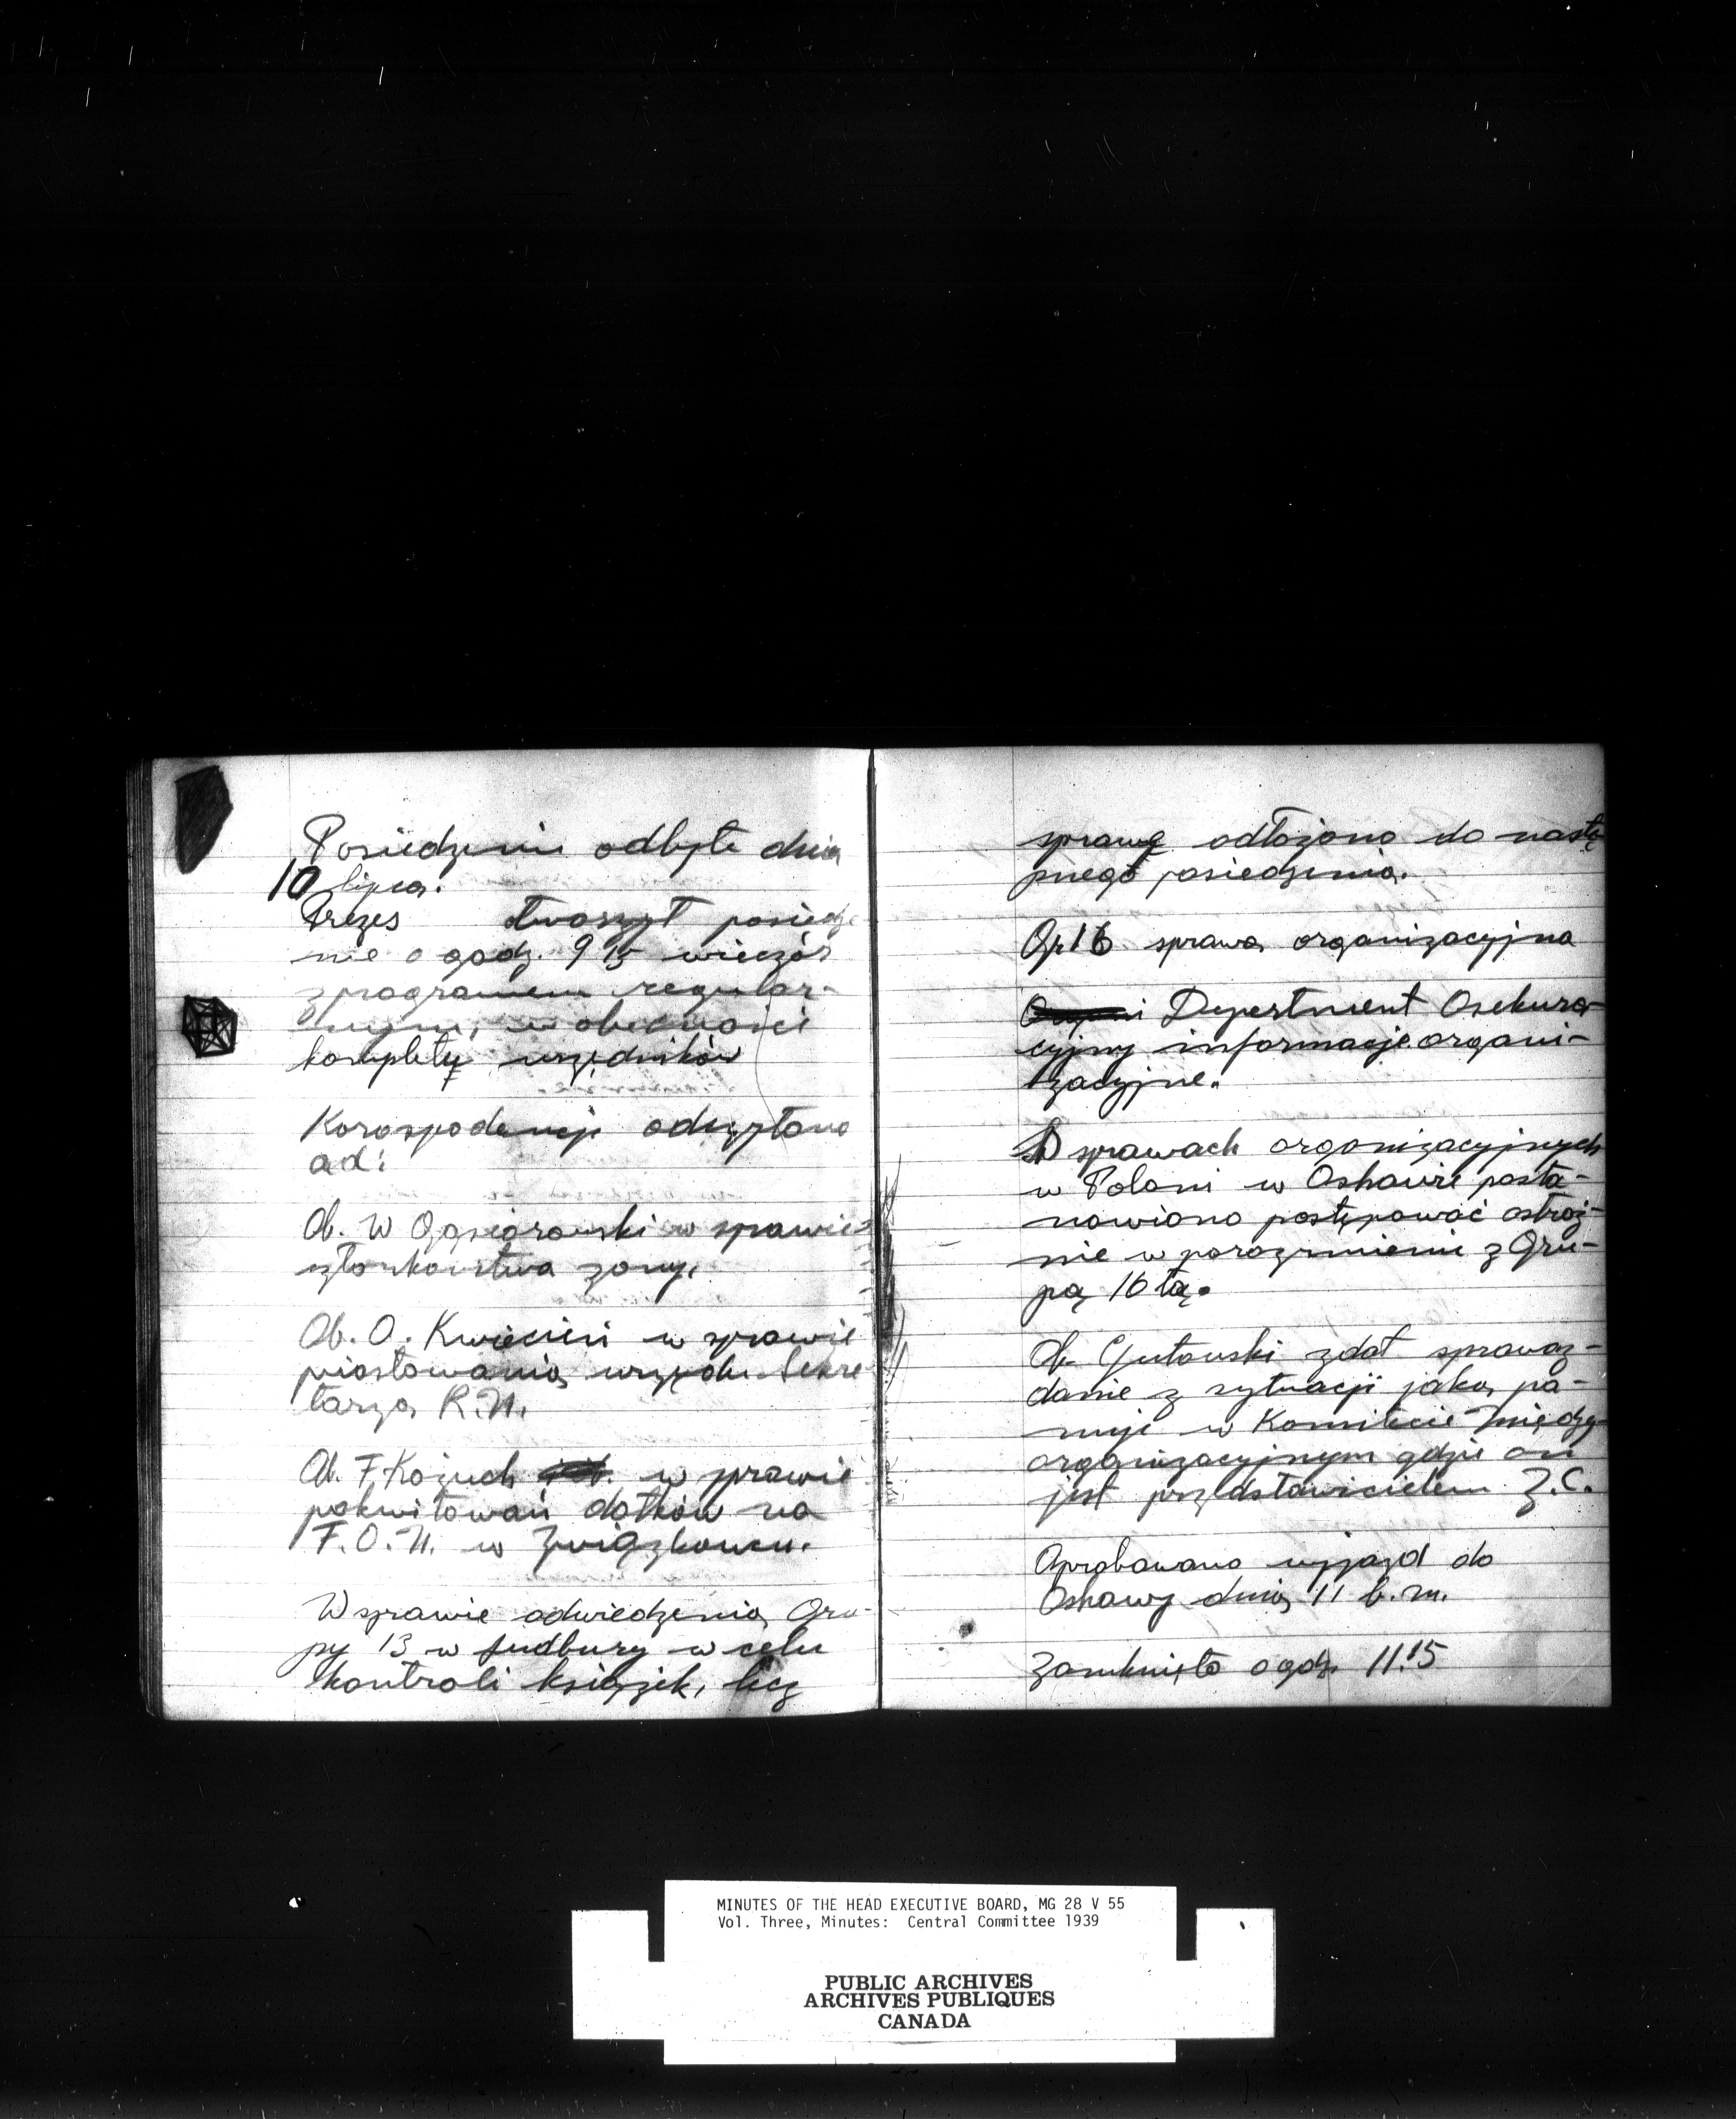 Posiedzenie odbyte dnia
10 lipca.
Prezes otworzył posiedze
nie o godz. 9 15 wieczór
z programem regular-
nym, w obecności
kompletu urzędników
Korospodencji odczytano
od:
Ob. W Gąsiorowski w sprawie
członkowstwa żony.
Ob. O. Kwiecień w sprawie
piastowania urzędu Sekre
tarza R.N.
Ob. F. Kożuch w sprawie
pokwitowań datków na
F.O.N. w Związkowcu.
W sprawie odwiedzenia Gru-
py 13 w Sudbury w celu
kontroli książek, lecz
sprawę odłożono do nastę
pnego posiedzenia.
Gp 16 sprawa organizacyjna
i Depertment Asekura-
cyjny informacje organi-
zacyjne.
O sprawach organizacyjnych
w Poloni w Oshawie posta-
nowiono postępować ostroż-
nie w porozumieniu z Gru-
pą 16tą.
Ob. Gutowski zdał sprawoz-
danie z sytuacji jaka pa-
nuje w Komitecie Między-
organizacyjnym gdzie on
jest przedstawicielem Z.C.
Aprobowano wyjazd do
Oshawy dnia 11 b.m.
Zamknięto o godz. 11.15
MINUTES OF THE HEAD EXECUTIVE BOARD, MG 28 V 55
Vol. Three, Minutes: Central Committee 1939
PUBLIC ARCHIVES
ARCHIVES PUBLIQUES
CANADA